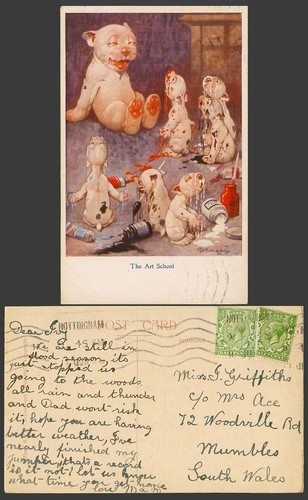 The Art School
NOTTINGHAM
POST CARD
Dear Ivy
We are still in
flood season, its
just stopped us
going to the woods
all rain and thunder
and Dad wont risk
it, hope you are having
better weather, I've
nearly finished my
jumper, thats a record
is it not. let us know
what time you get home
love Mam
Miss. I. Griffiths
c/o Mrs Ace
72 Woodville Rd
Mumbles
South Wales